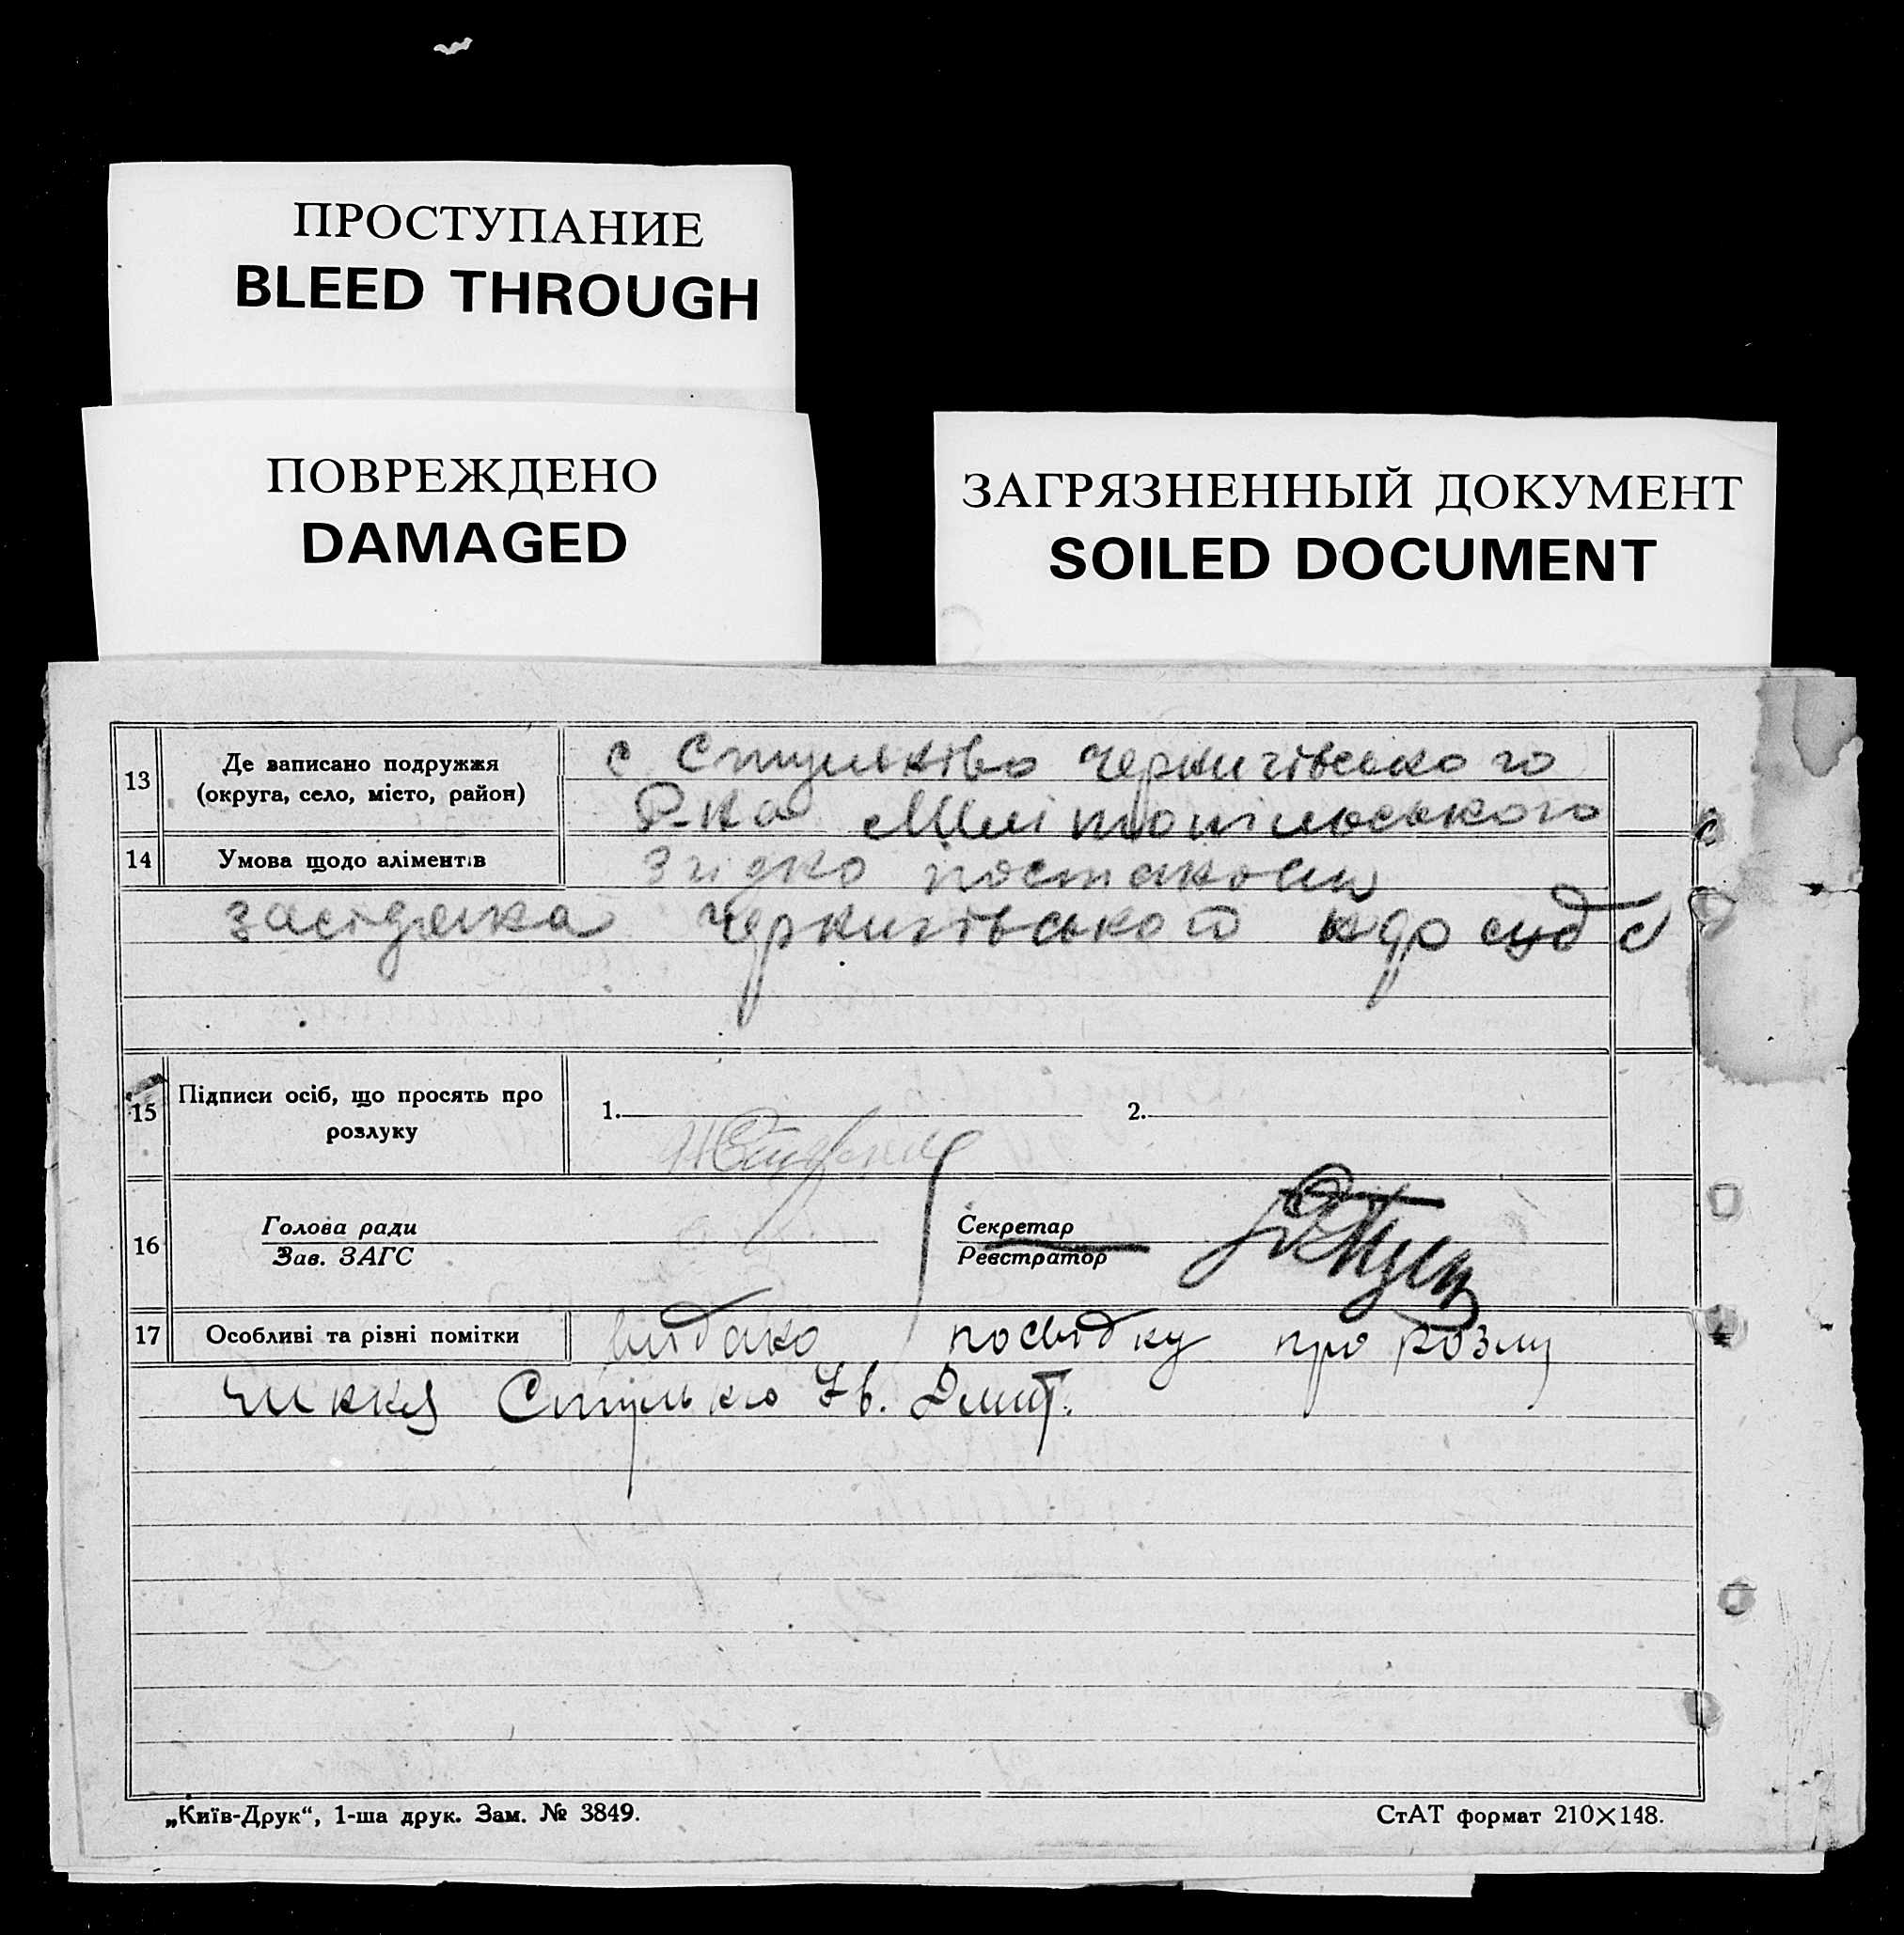 ПРОСТУПАНИЕ
BLEED THROUGH
ПОВРЕЖДЕНО
DAMAGED
ЗАГРЯЗНЕННЫЙ ДОКУМЕНТ
SOILED DOCUMENT
13 Де записано подружжя
(округа, село, місто, район)
с Стульніво Чернигівського
Р-на Мелітопільського
14 Умова щодо аліментів
Згідно постанови
засідання Чернигівського нарсуда
15 Підписи осіб, що просять про
розлуку
1. 2.
16 Голова ради
Зав. ЗАГС
Секретар
Реєстратор
17 Особливі та різні помітки
видано посвідку про розлу
чиння Ів. Дмит.
„Київ-Друк“, 1-ша друк. Зам. № 3849.
СтАТ формат 210×148.